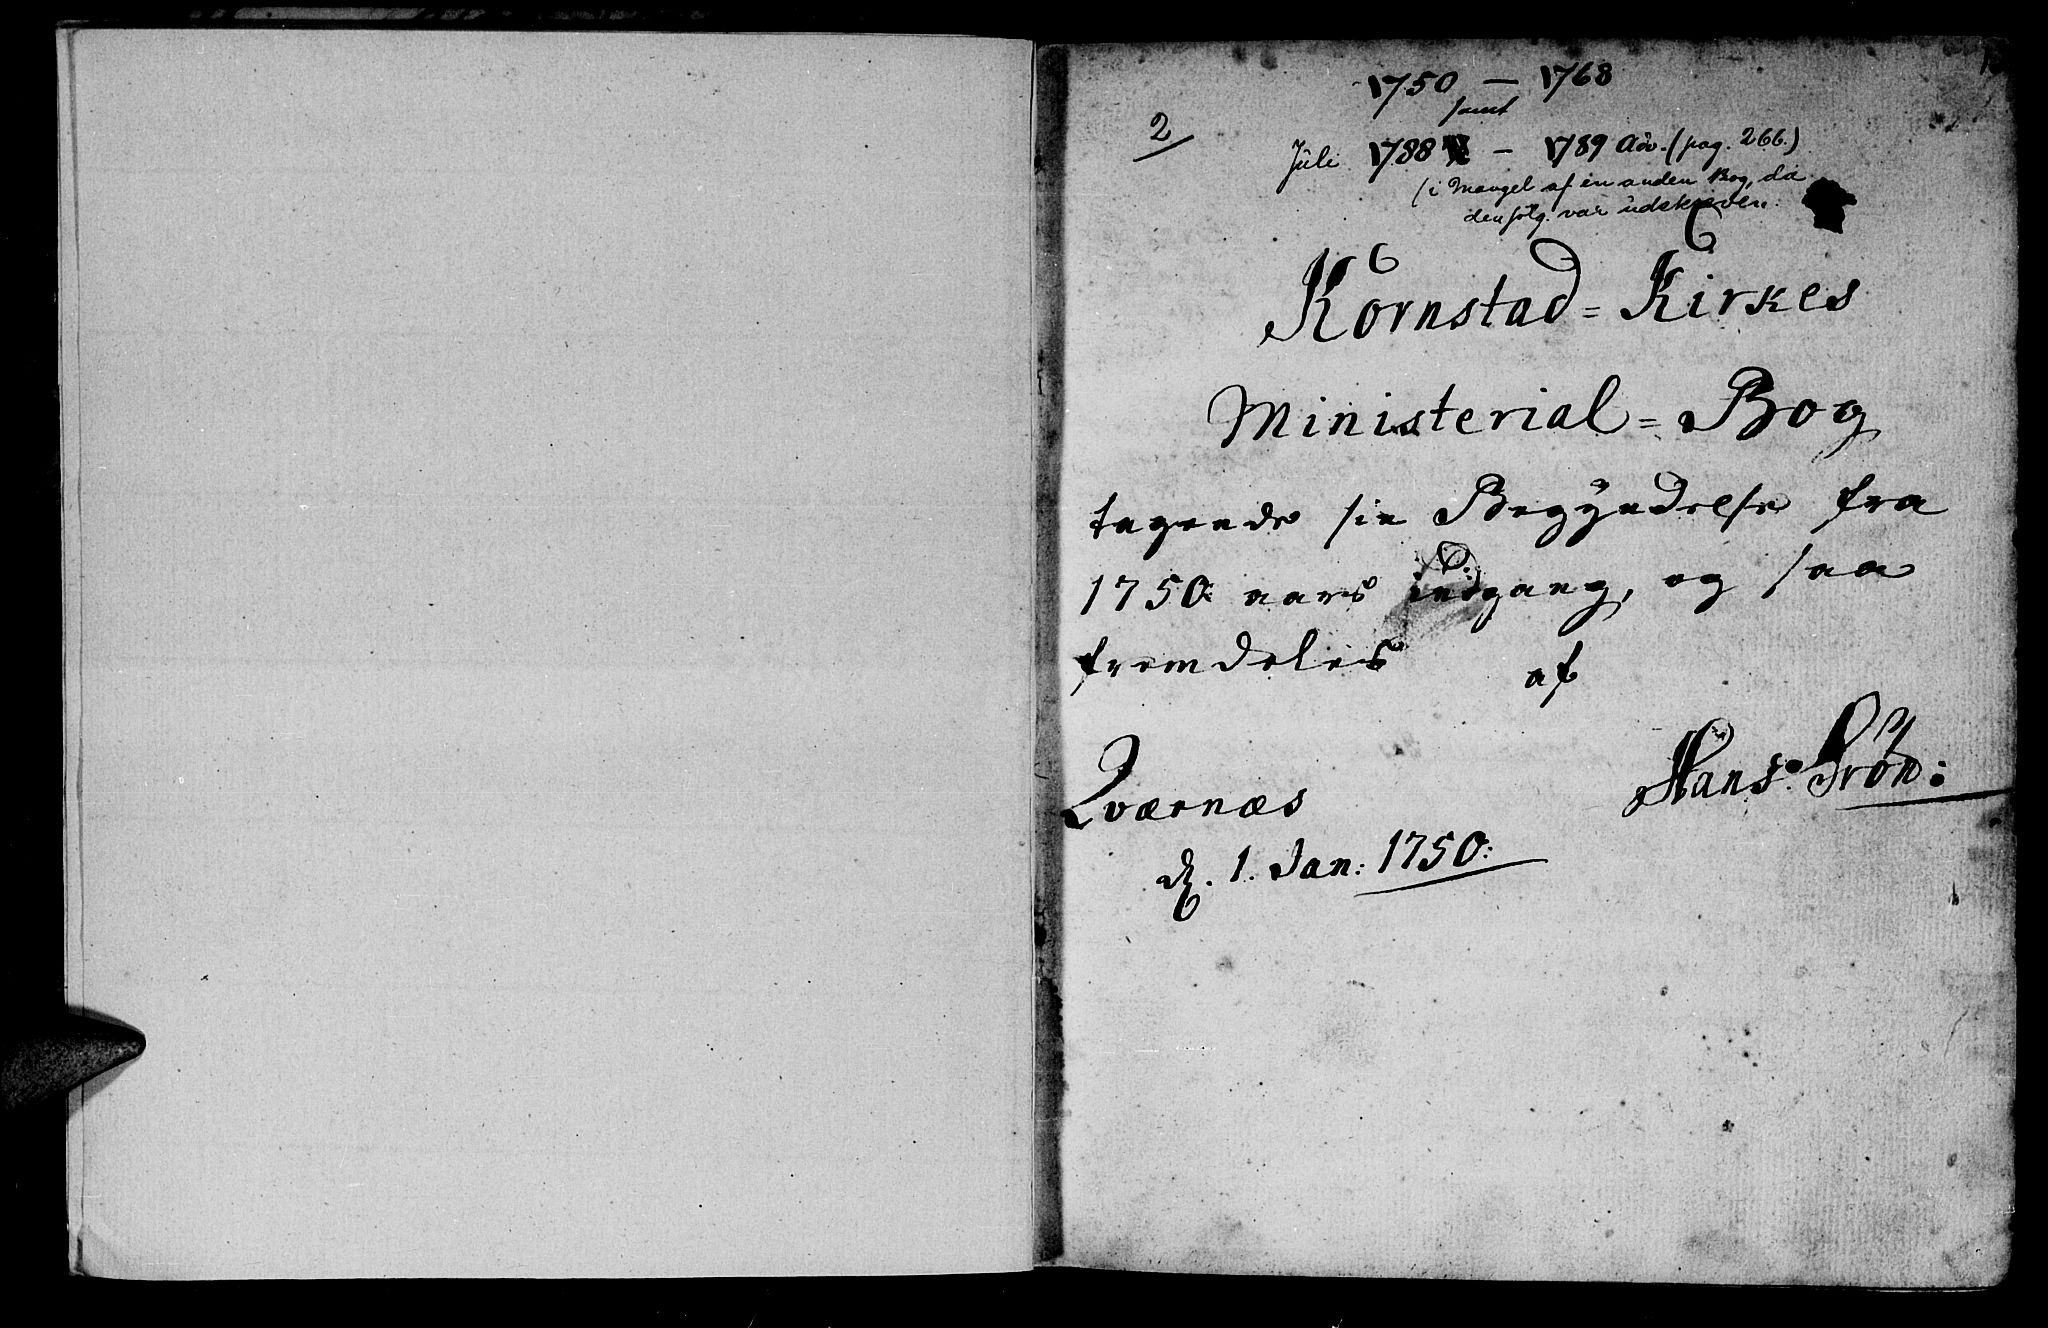 1750 — 1768
samt
2
Juli 1788 — 1789 (pag. 266.)
(i Mangel af en anden Bog, da
den følg. var udskreven.
Kornstad = Kirkes
Ministerial = Bog
tagende sin Begÿndelse fra
1750: aars indgang, og saa
fremdeles af
Qværnæs Hans:
d. 1. Jan: 1750: